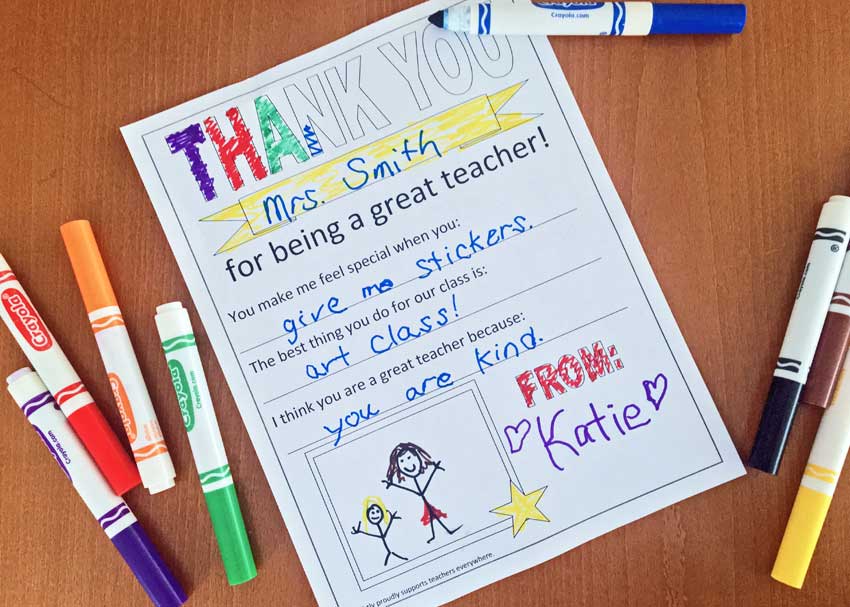 Crayola.com
THANK YOU
Mrs. Smith
for being a great teacher!
You make me feel special when you:
give me stickers.
The best thing you do for our class is:
art class!
I think you are a great teacher because:
you are kind.
FROM:
Katie
proudly supports teachers everywhere.
Crayola
Crayola
Crayola
Crayola.com
Crayola.com